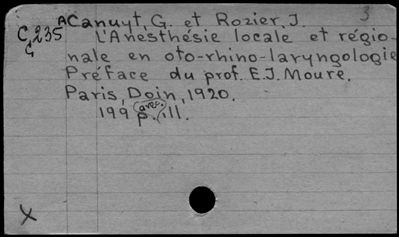 3
ACanuyt, G. et Rozier, J.
C,235
G
L'Anesthésie locale et régio-
nale en oto-rhino-laryngologie
Préface du prof. E.J. Moure.
Paris, Doin, 1920.
199 p. avec. ill.
X